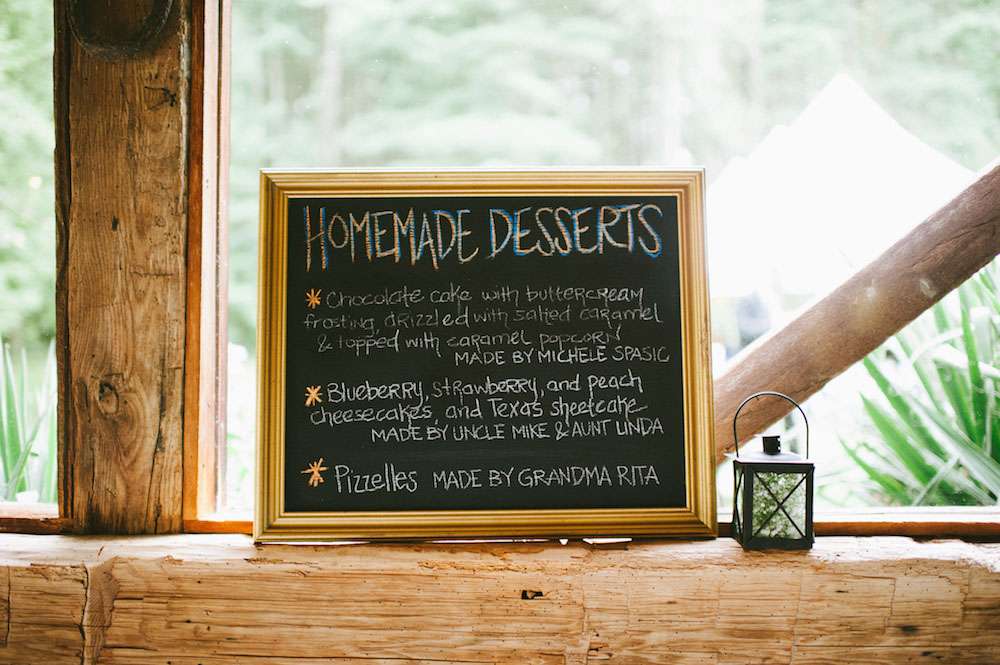 HOMEMADE DESSERTS
* Chocolate cake with buttercream
frosting, drizzled with salted caramel
& topped with caramel popcorn
MADE BY MICHELE SPASIC
* Blueberry, strawberry, and peach
cheesecakes, and Texas sheetcake
MADE BY UNCLE MIKE & AUNT LINDA
* Pizzelles MADE BY GRANDMA RITA